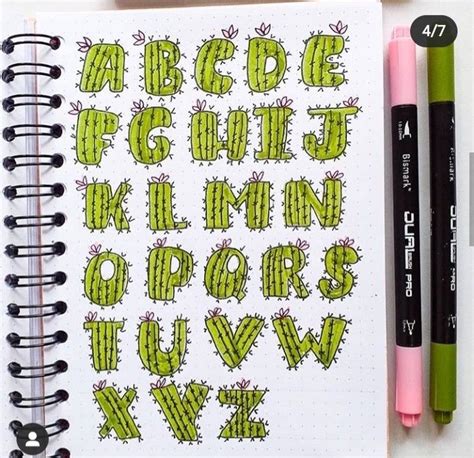 4/7
A B C D E
F G H I J
K L M N
O P Q R S
T U V W
X Y Z
Bismark
DUAL
PRO
Bismark
DUAL
PRO